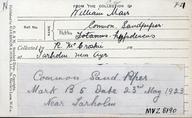 FROM THE COLLECTION OF
William Mair
Common Sandpiper
Totanus Hypoleucus
Collected by R. McCrorie
at Tarholm near Ayr
Common Sand Piper
Mark B 5 Date 23rd May 1923
Near Tarholm